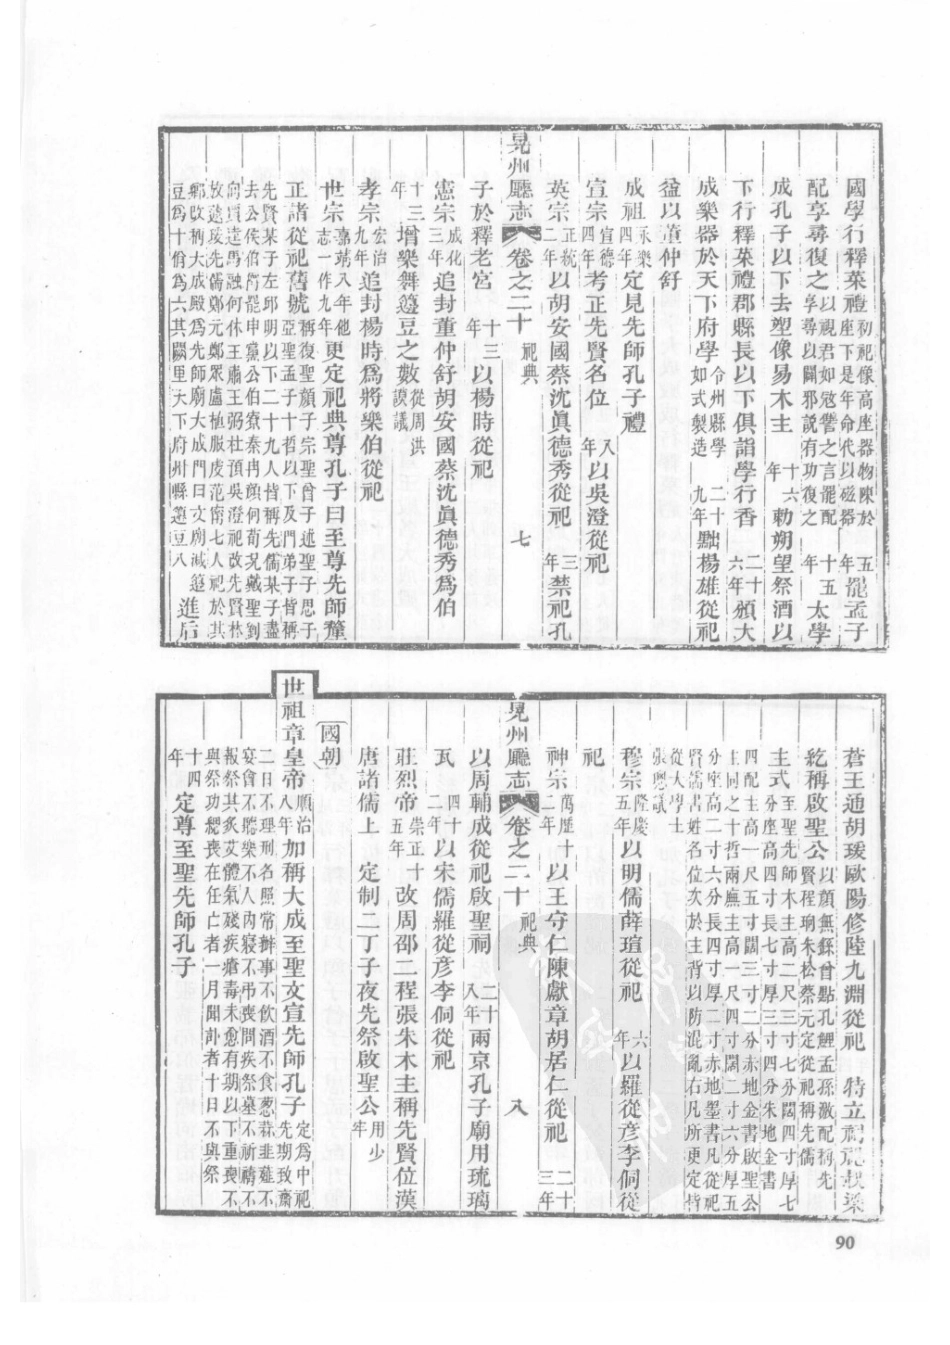 國學行釋菜禮初祀像高座器物陳於座下是年命代以磁器五年罷孟子
配享尋復之以視君如寇讐之言罷配享尋以闢邪說有功復之十五年太學
成孔子以下去塑像易木主十六年勅朔望祭酒以
下行釋菜禮郡縣長以下俱詣學行香二十六年頒大
成樂器於天下府學令州縣學如式製造二十九年黜楊雄從祀
益以董仲舒
成祖永樂四年定見先師孔子禮
宣宗宣德四年考正先賢名位八年以吳澄從祀
英宗正統二年以胡安國蔡沈眞德秀從祀三年禁祀孔
晃州廳志 卷之二十 祀典 七
子於釋老宮十三年以楊時從祀
憲宗成化三年追封董仲舒胡安國蔡沈眞德秀爲伯
十三年增樂舞籩豆之數從周洪謨議
孝宗宏治九年追封楊時爲將樂伯從祀
世宗嘉靖八年他志一作九年更定祀典尊孔子曰至尊先師釐
正諸從祀舊號稱復聖顏子宗聖曾子述聖子思子亞聖孟子十哲以下及門弟子皆稱
先賢某子左邱明以下二十九人皆稱先儒某子盡去公侯伯爵罷申黨公伯寮秦冉顏何荀况戴聖劉
向賈逵馬融何休王肅王弼杜預吳澄祀改先賢林放蘧瑗先儒鄭元鄭眾盧植服虔范甯七人祀於其
鄉改稱大成殿爲先師廟大成門曰文廟減籩豆爲十佾爲六其闕里天下府州縣籩豆八進后
蒼王通胡瑗歐陽修陸九淵從祀 特立祠祀叔梁
紇稱啟聖公以顏無繇曾點孔鯉孟孫激配稱先賢程珦朱松蔡元定從祀稱先儒
主式至聖先師木主高二尺三寸七分闊四寸厚七分座高四寸長七寸厚三寸四分朱地金書
四配主高一尺五寸闊三寸二分赤地金書啟聖公主同之十哲兩廡主高一尺四寸闊二寸六分厚五
分座高二寸六分長四寸厚二寸赤地墨書凡從祀賢儒書姓名位次於主背以防混亂右凡所更定皆
從大學士張璁議
穆宗隆慶五年以明儒薛瑄從祀六年以羅從彦李侗從
祀
神宗萬歷十二年以王守仁陳獻章胡居仁從祀二十三年
晃州廳志 卷之二十 祀典 八
以周輔成從祀啟聖祠二十八年兩京孔子廟用琉璃
瓦四十二年以宋儒羅從彦李侗從祀
莊烈帝崇正十五年改周邵二程張朱木主稱先賢位漢
唐諸儒上 定制二丁子夜先祭啟聖公用少年
國朝
世祖章皇帝順治八年加稱大成至聖文宣先師孔子定爲中祀先期致齋
二日不理刑名照常辦事不飲酒不食葱蒜韭薤不宴會不聽樂不入內寢不弔喪問疾祭墓不祈禱不
報祭其炙艾體氣殘疾瘡毒未愈有期以下重喪不與祭功緦喪在任亡者一月聞訃者十日不與祭
十四年定尊至聖先師孔子
90